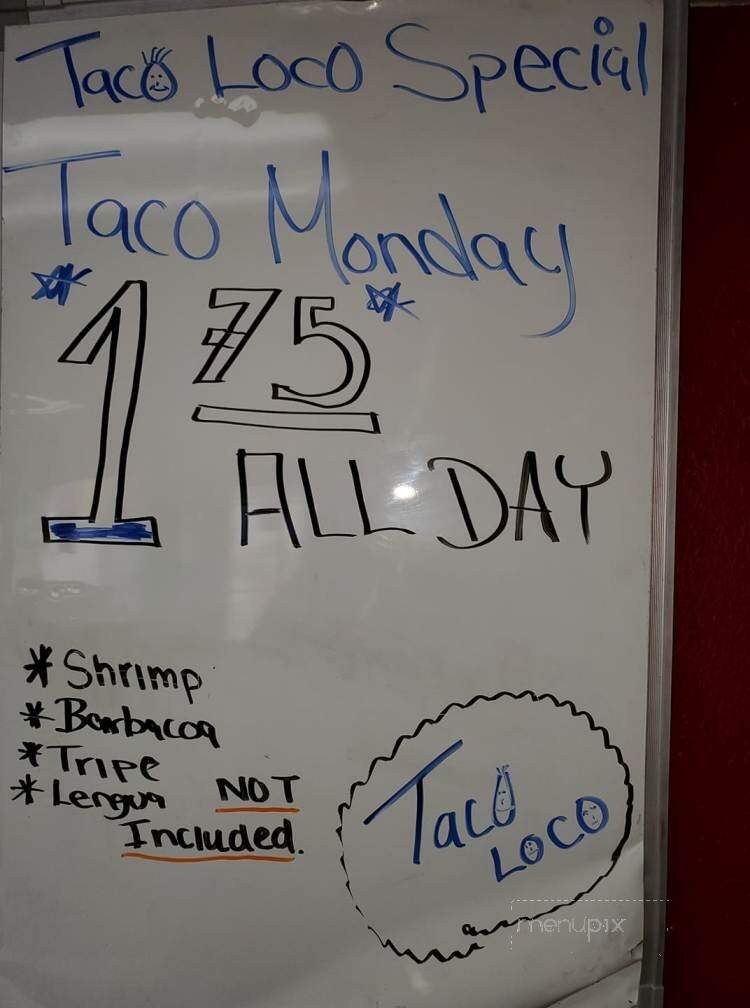 Taco Loco Special
Taco Monday
*1 75 *
ALL DAY
* Shrimp
* Barbacoa
* Tripe
* Lengua NOT
Included.
Taco
Loco
menupix